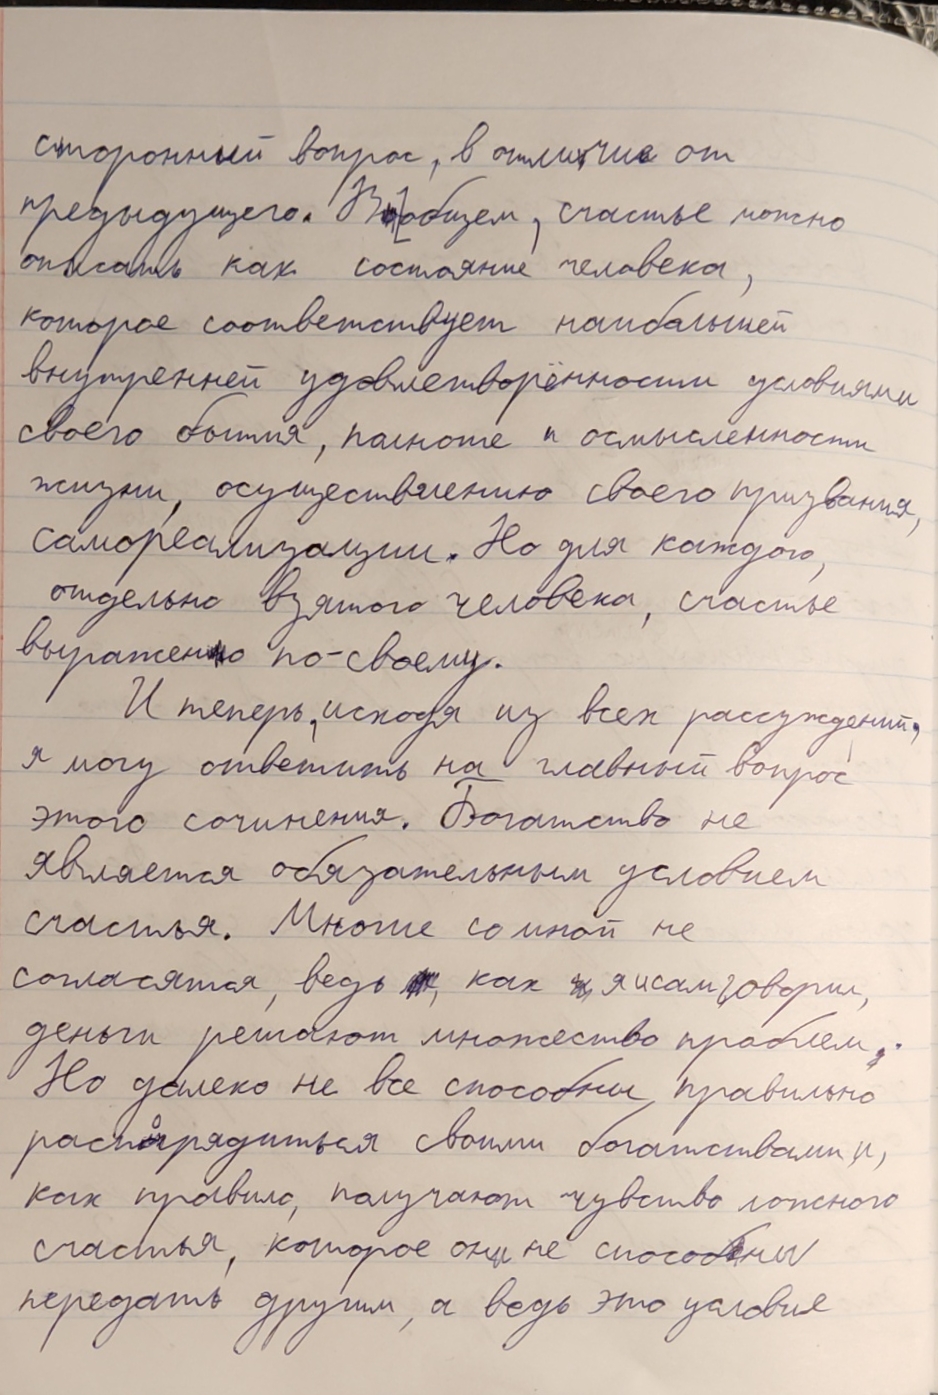 сторонный вопрос, в отличие от
предыдущего. В общем, счастье можно
описать как состояние человека,
которое соответствует наибольшей
внутренней удовлетворённости условиями
своего бытия, полноте и осмысленности
жизни, осуществлению своего призвания,
самореализации. Но для каждого,
отдельно взятого человека, счастье
выражено по-своему.
И теперь, исходя из всех рассуждений,
я могу ответить на главный вопрос
этого сочинения. Богатство не
является обязательным условием
счастья. Многие со мной не
согласятся, ведь, как я и сам говорил,
деньги решают множество проблем.
Но далеко не все способны правильно
распорядиться своими богатствами и,
как правило, получают чувство ложного
счастья, которое они не способны
передать другим, а ведь это условие